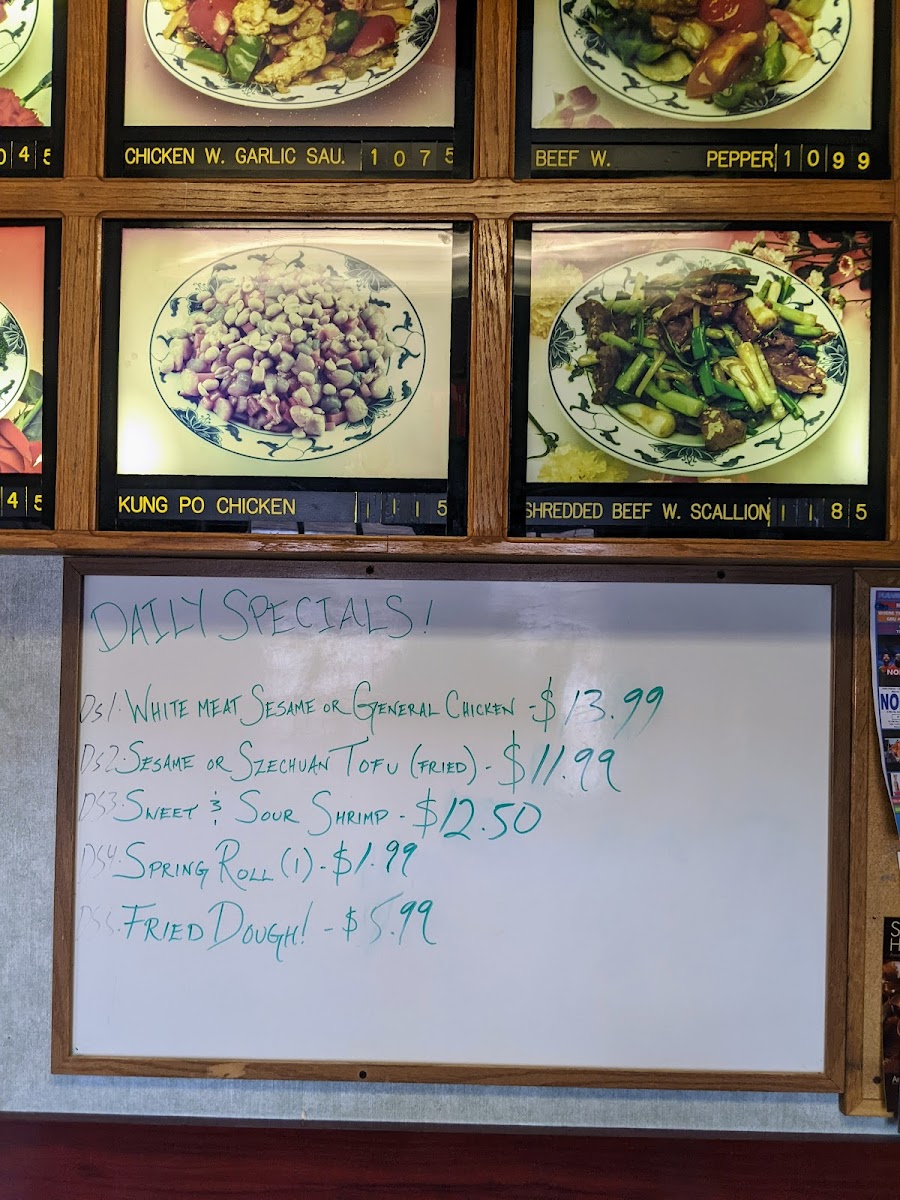 045
CHICKEN W. GARLIC SAU. 1075
BEEF W. PEPPER 1099
45
KUNG PO CHICKEN 1115
SHREDDED BEEF W. SCALLION 1185
DAILY SPECIALS!
DS1. WHITE MEAT SESAME OR GENERAL CHICKEN - $13.99
DS2. SESAME OR SZECHUAN TOFU (FRIED) - $11.99
DS3. SWEET & SOUR SHRIMP - $12.50
DS4. SPRING ROLL (1) - $1.99
DS5. FRIED DOUGH! - $5.99
NO